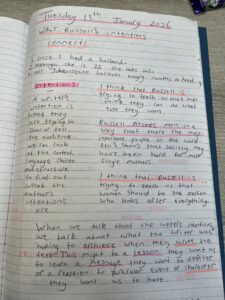 Tuesday 13th January 2026
WALT: Russell's intentions
connects
"once I had a husband
Intention:
A writer's
intention is
what they
are trying to
show or tell
the audience.
We can look
at the context,
language choices
and structure
to find out
what the
author's
intentions
are.
I think that Russell is
trying to teach us that men
think they can do what
ever they want.
Russell presents men in a
way that there the most
important people in the world
this shows that society may
have been hard for most
single mothers.
I think that Russell is
trying to teach us that
women should be the person
who looks after everything.
When we talk about the writer's intentions,
we talk about what the writer was
hoping to achieve when they wrote the
text. This might be a lesson they want us
to learn, a message they want to deliver
or a reaction to particular event or character
they want us to have.